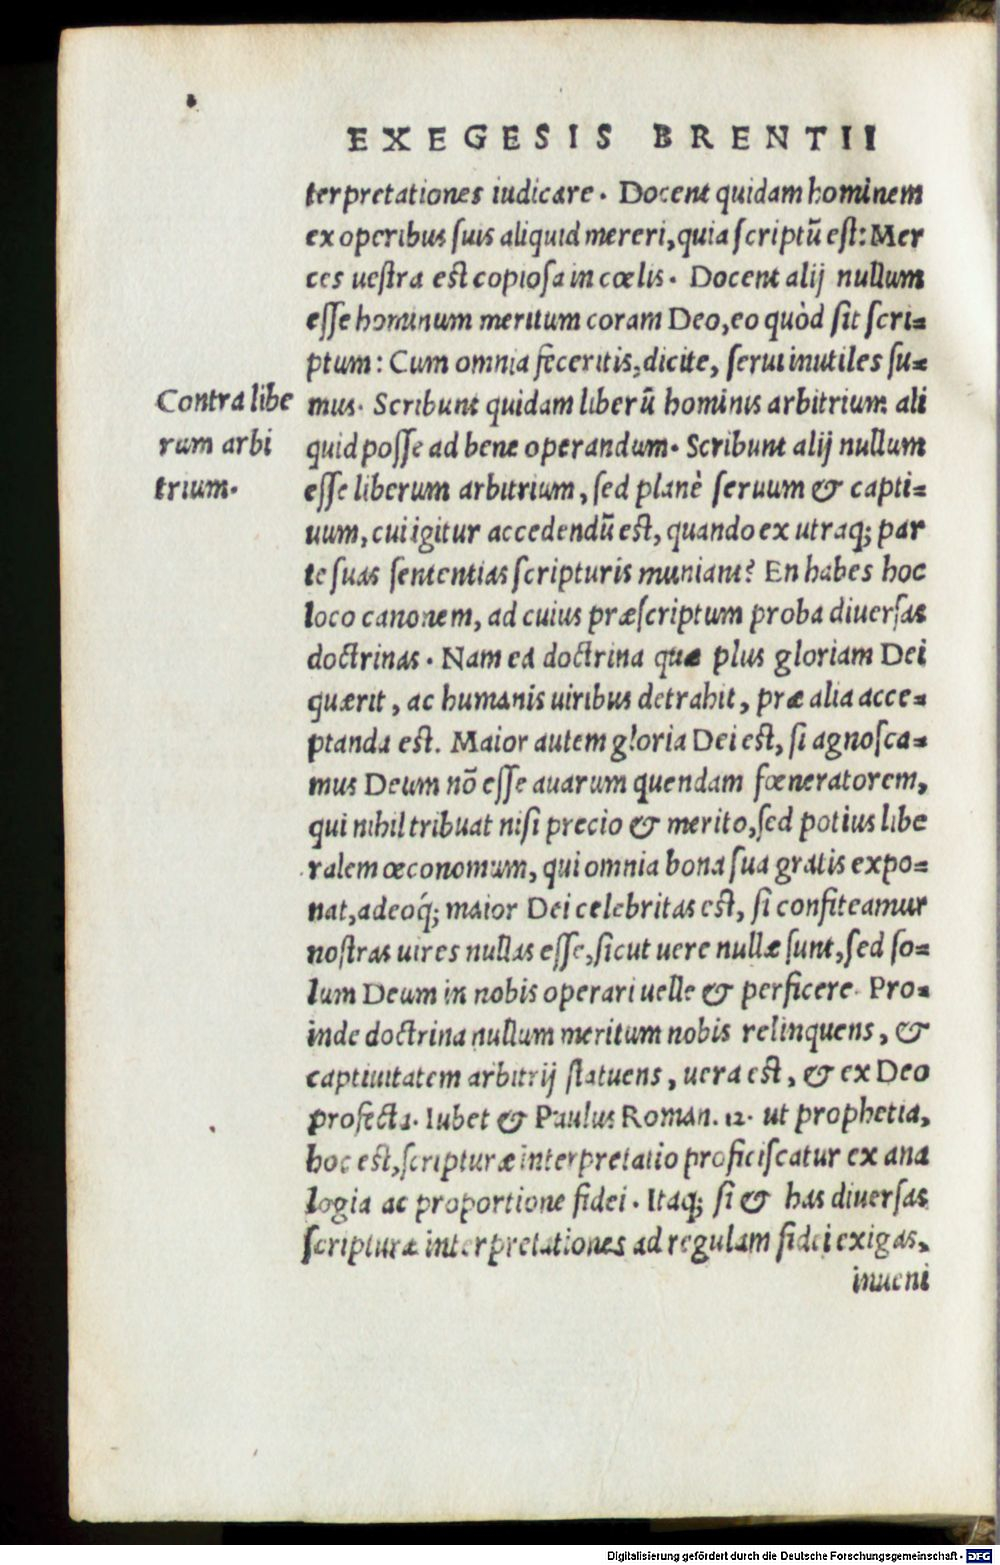 EXEGESIS BRENTII
terpretationes iudicare. Docent quidam hominem
ex operibus suis aliquid mereri, quia scriptũ est: Mer
ces uestra est copiosa in cœlis. Docent alij nullum
esse hominum meritum coram Deo, eo quòd sit scri=
ptum: Cum omnia feceritis, dicite, serui inutiles su=
mus. Scribunt quidam liberũ hominis arbitrium ali
quid posse ad bene operandum. Scribunt alij nullum
esse liberum arbitrium, sed planè seruum & capti=
uum, cui igitur accedendũ est, quando ex utraq; par
te suas sententias scripturis muniant? En habes hoc
loco canonem, ad cuius præscriptum proba diuersas
doctrinas. Nam ea doctrina quæ plus gloriam Dei
quærit, ac humanis uiribus detrahit, præ alia acce=
ptanda est. Maior autem gloria Dei est, si agnosca=
mus Deum nõ esse auarum quendam fœneratorem,
qui nihil tribuat nisi precio & merito, sed potius libe
ralem œconomum, qui omnia bona sua gratis expo=
nat, adeoq́; maior Dei celebritas est, si confiteamur
nostras uires nullas esse, sicut uere nullæ sunt, sed so=
lum Deum in nobis operari uelle & perficere. Pro=
inde doctrina nullum meritum nobis relinquens, &
captiuitatem arbitrij statuens, uera est, & ex Deo
profecta. Iubet & Paulus Roman. 12. ut prophetia,
hoc est, scripturæ interpretatio proficiscatur ex ana
logia ac proportione fidei. Itaq; si & has diuersas
scripturæ interpretationes ad regulam fidei exigas,
inueni
Contra libe
rum arbi
trium.
Digitalisierung gefördert durch die Deutsche Forschungsgemeinschaft - DFG